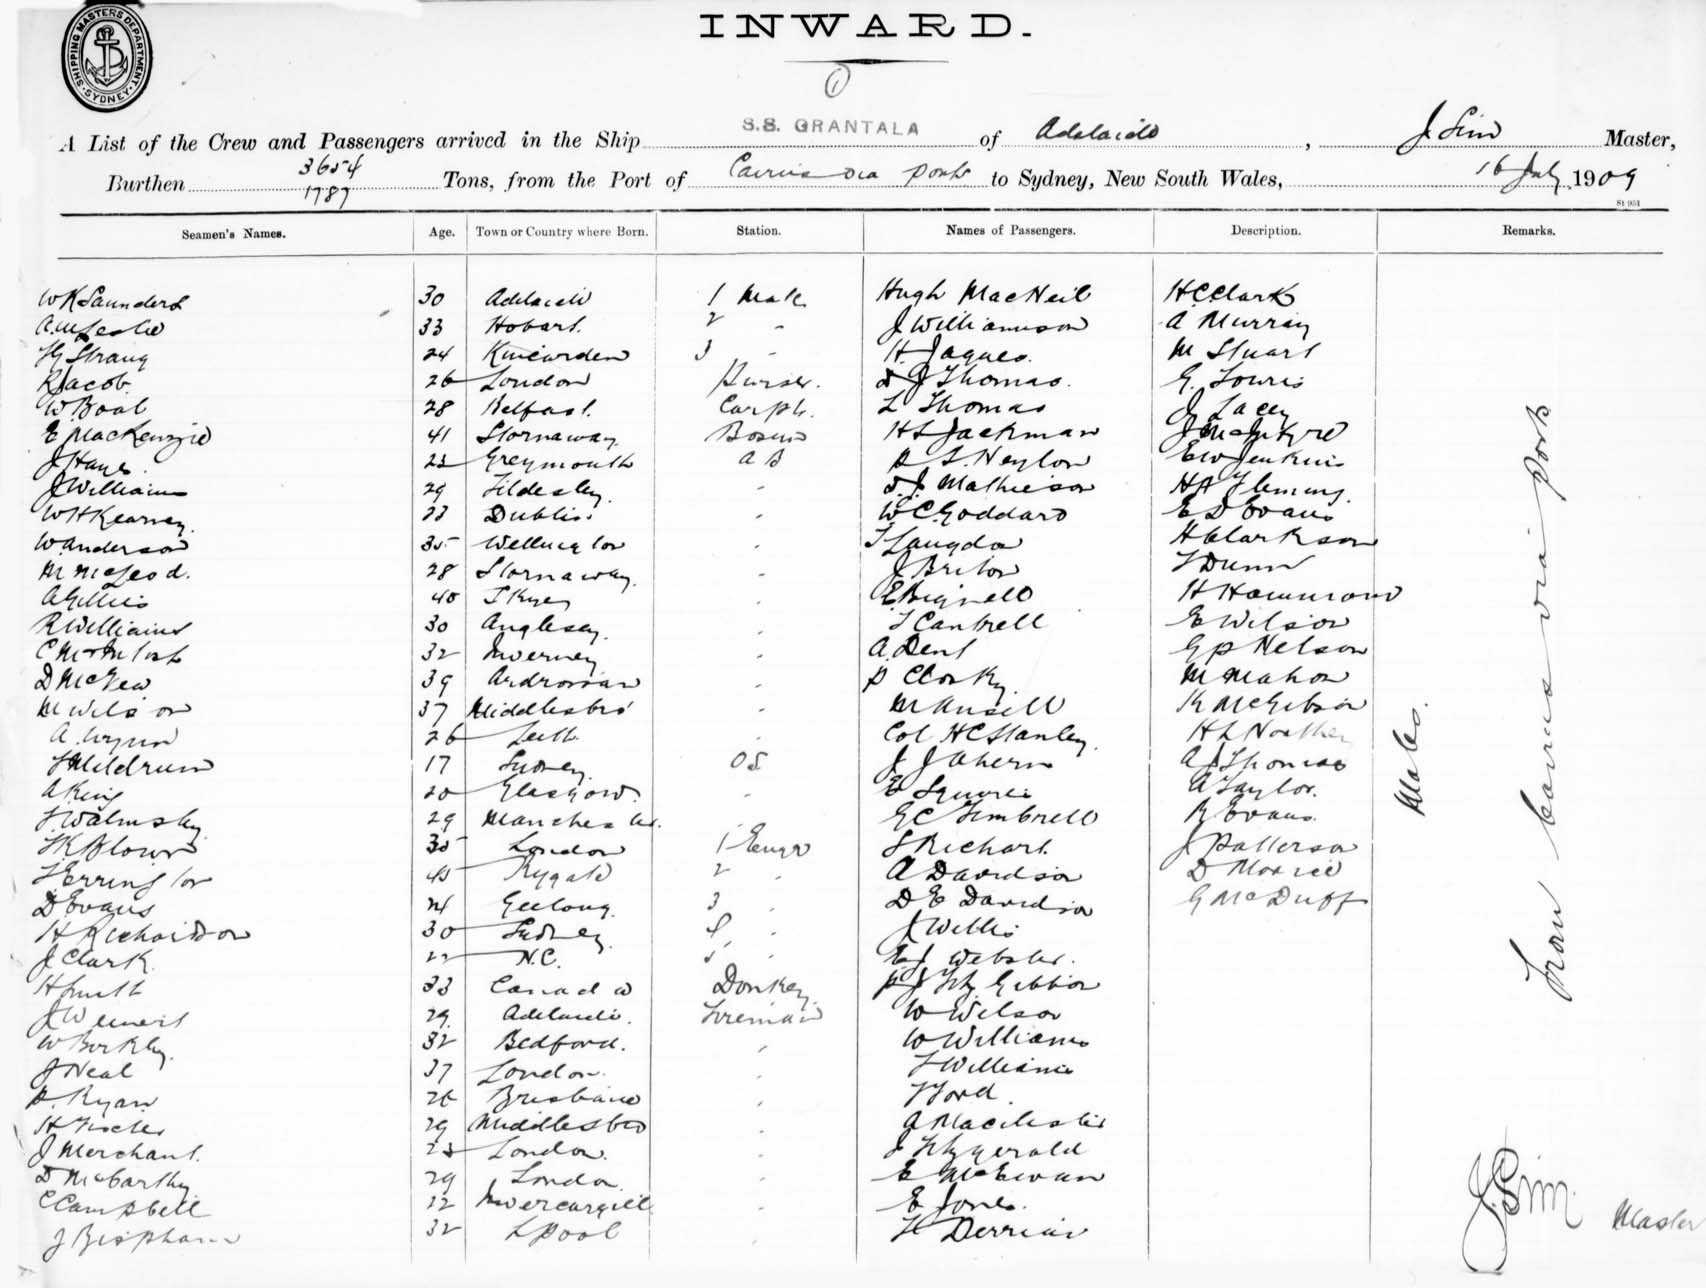 INWARD.
SHIPPING MASTERS DEPARTMENT SYDNEY
1
A List of the Crew and Passengers arrived in the Ship S.S. GRANTALA of Adelaide, J Sim Master,
Burthen 3654 1787 Tons, from the Port of Cairns via ports to Sydney, New South Wales, 16 July 1909
Seamen's Names. Age. Town or Country where Born. Station. Names of Passengers. Description. Remarks.
W K Saunders 30 Adelaide 1 Mate Hugh MacNeil H C Clark
A. W Leslie 33 Hobart. 2 " J Williamson A Murray
H G Strang 24 Kincarden 3 " H. Jaques. M Stuart
R Jacob 26 London Purser. D J Thomas. G. Lowris
W. Boal 28 Belfast. Carptr. L Thomas J Lacey
E MacKenzie 41 Stornaway Bosun H S Jackman J McIntyre
J Hayes. Greymouth A B P S. Neylon E W Jenkins
J Williams 29 Tildesley. " D. J Mathieson H A Fleming.
W H Kearney. 23 Dublin " W C Goddard E D Evans
W. Anderson 35 Wellington " T Langdon H Clarkson
M McLeod. 28 Stornaway. " J Briton T Dunn
A Gillies 40 Skye " E Bignell H Hammond
R Williams 30 Anglesey. " T Cantrell E Wilson
C McIntosh 32 " A. Dent G P Nelson
D McGew 39 Ardrossan " P Closky. M Mahon
M Wilson 37 Middlesbro' " M Ansell K McGibson
A. Wynn 26 Leith " Col H C Stanley. H L Norther
F Meldrum 17 Sydney. O S J J Ahern A J Thomas
A King 20 Glasgow. " E Squires A Taylor.
T. Walmsley. 29 Manchester. " G C Timbrell R Evans.
London 1 Engr S Richart. J Patterson
T Errington 45 Rygate 2 " A Davidson D Morrice
D Evans 24 Geelong. 3 " D E Davidson G McDuff
H Richardson 30 Sydney. 4 " J Willis
J Clark. 22 N.C. 5 " E J Webster.
H Smith 33 Canada Donkey. P J Fitz Gibbon
29. Adelaide. Fireman W Wilson
W Berkley. 32 Bedford. " W Williams
J Neal 37 London. " T Williams
P. Ryan 26 Brisbane " T Ford.
H Fischer 29 Middlesbro " A MacAlister
J Merchant. 23 London. " J Fitzgerald
D McCarthy 29 London. " E McEwan
C Campbell 22 Invercargill " E Jones.
J Bispham 32 Lpool H Derrian
Males.
From Cairns via ports
J. Sim. Master